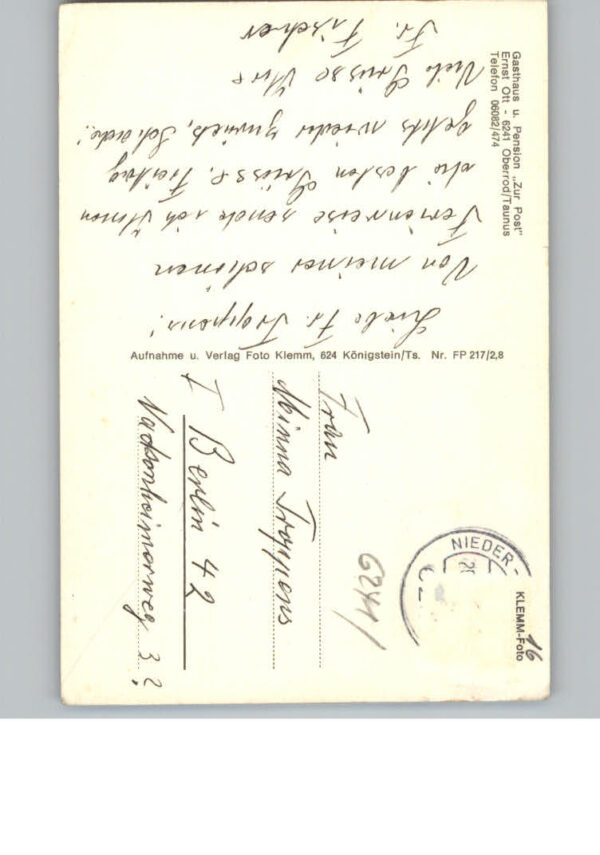 Gasthaus u. Pension „Zur Post"
Ernst Ott - 6241 Oberrod/Taunus
Telefon 06082/474
Liebe Fr. Troppens!
Von meiner schönen
Ferienreise sende ich Ihnen
die besten Grüsse. Freitag
gehts wieder zurück, Schade!
Viele Grüsse Ihre
Fr. Fischer
Aufnahme u. Verlag Foto Klemm, 624 Königstein/Ts. Nr. FP 217/2,8
Frau
Minna Troppens
I Berlin 42
Nackenheimerweg
NIEDER-
KLEMM-Foto
16